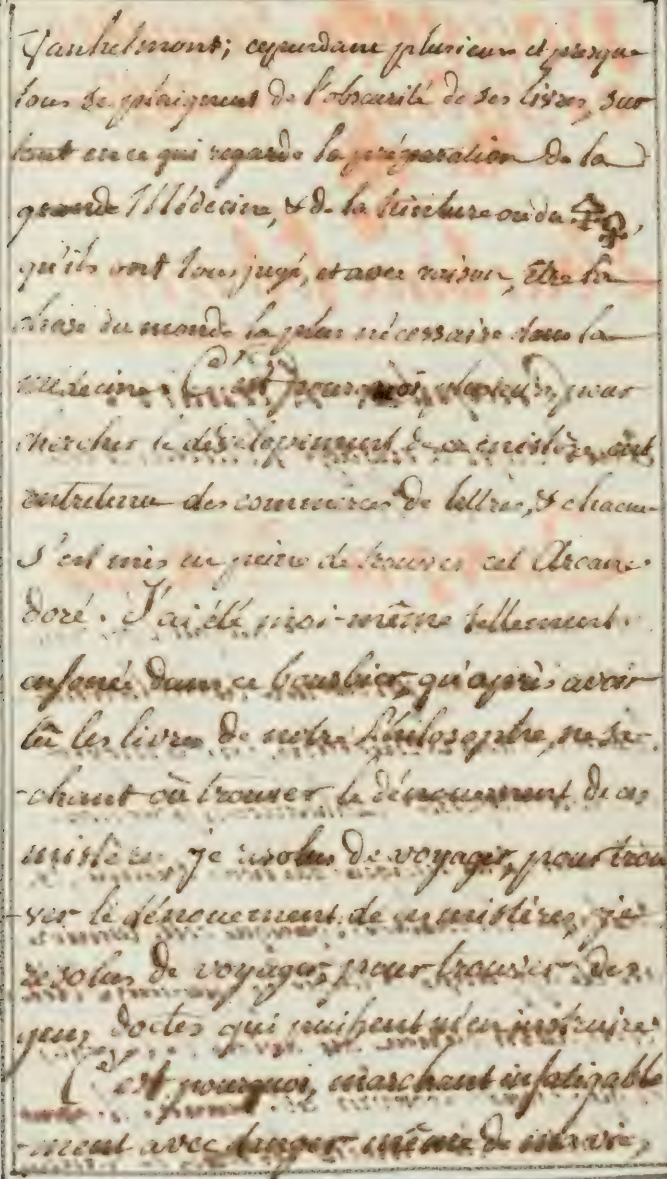 Vanhelmont; cependant plusieurs et presque
tous se plaignent de l'obscurité de ses livres, sur
tout en ce qui regarde la préparation de la
grande Médecine, & de la teinture ou du
qu'ils ont tous jugé, et avec raison, être la
chose du monde la plus nécessaire dans la
médecine. C'est pourquoi plusieurs, pour
chercher le dévelopement de ce mistère, ont
entretenu des commerces de lettres, & chacun
s'est mis en peine de trouver cet Arcane
doré. J'ai été moi-même tellement
enfoncé dans ce bourbier, qu'après avoir
lû les livres de notre Philosophe, ne sa-
-chant où trouver le dénouement de ces
mistères je résolus de voyager, pour trou
-ver le dénouement de ces mistères, je
résolus de voyager, pour trouver des
gens doctes qui puissent m'en instruire
C'est pourquoi, marchant infatigable
-ment avec danger même de ma vie,